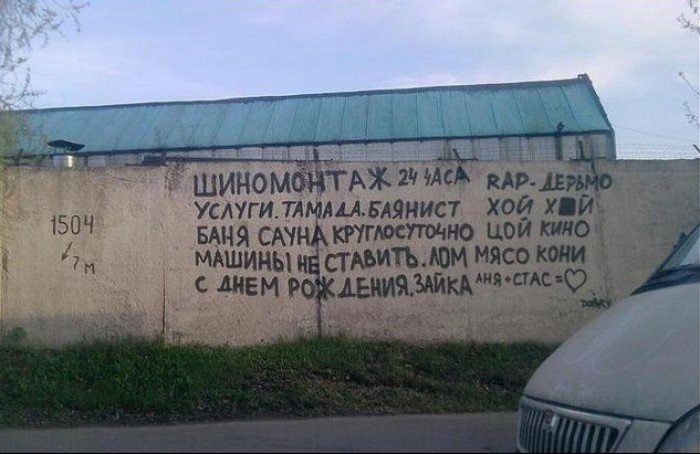 1504
7 м
ШИНОМОНТАЖ 24 ЧАСА RAP-ДЕРЬМО
УСЛУГИ. ТАМАДА. БАЯНИСТ ХОЙ Х■Й
БАНЯ САУНА КРУГЛОСУТОЧНО ЦОЙ КИНО
МАШИНЫ НЕ СТАВИТЬ. ЛОМ МЯСО КОНИ
С ДНЕМ РОЖДЕНИЯ, ЗАЙКА АНЯ+СТАС=♡